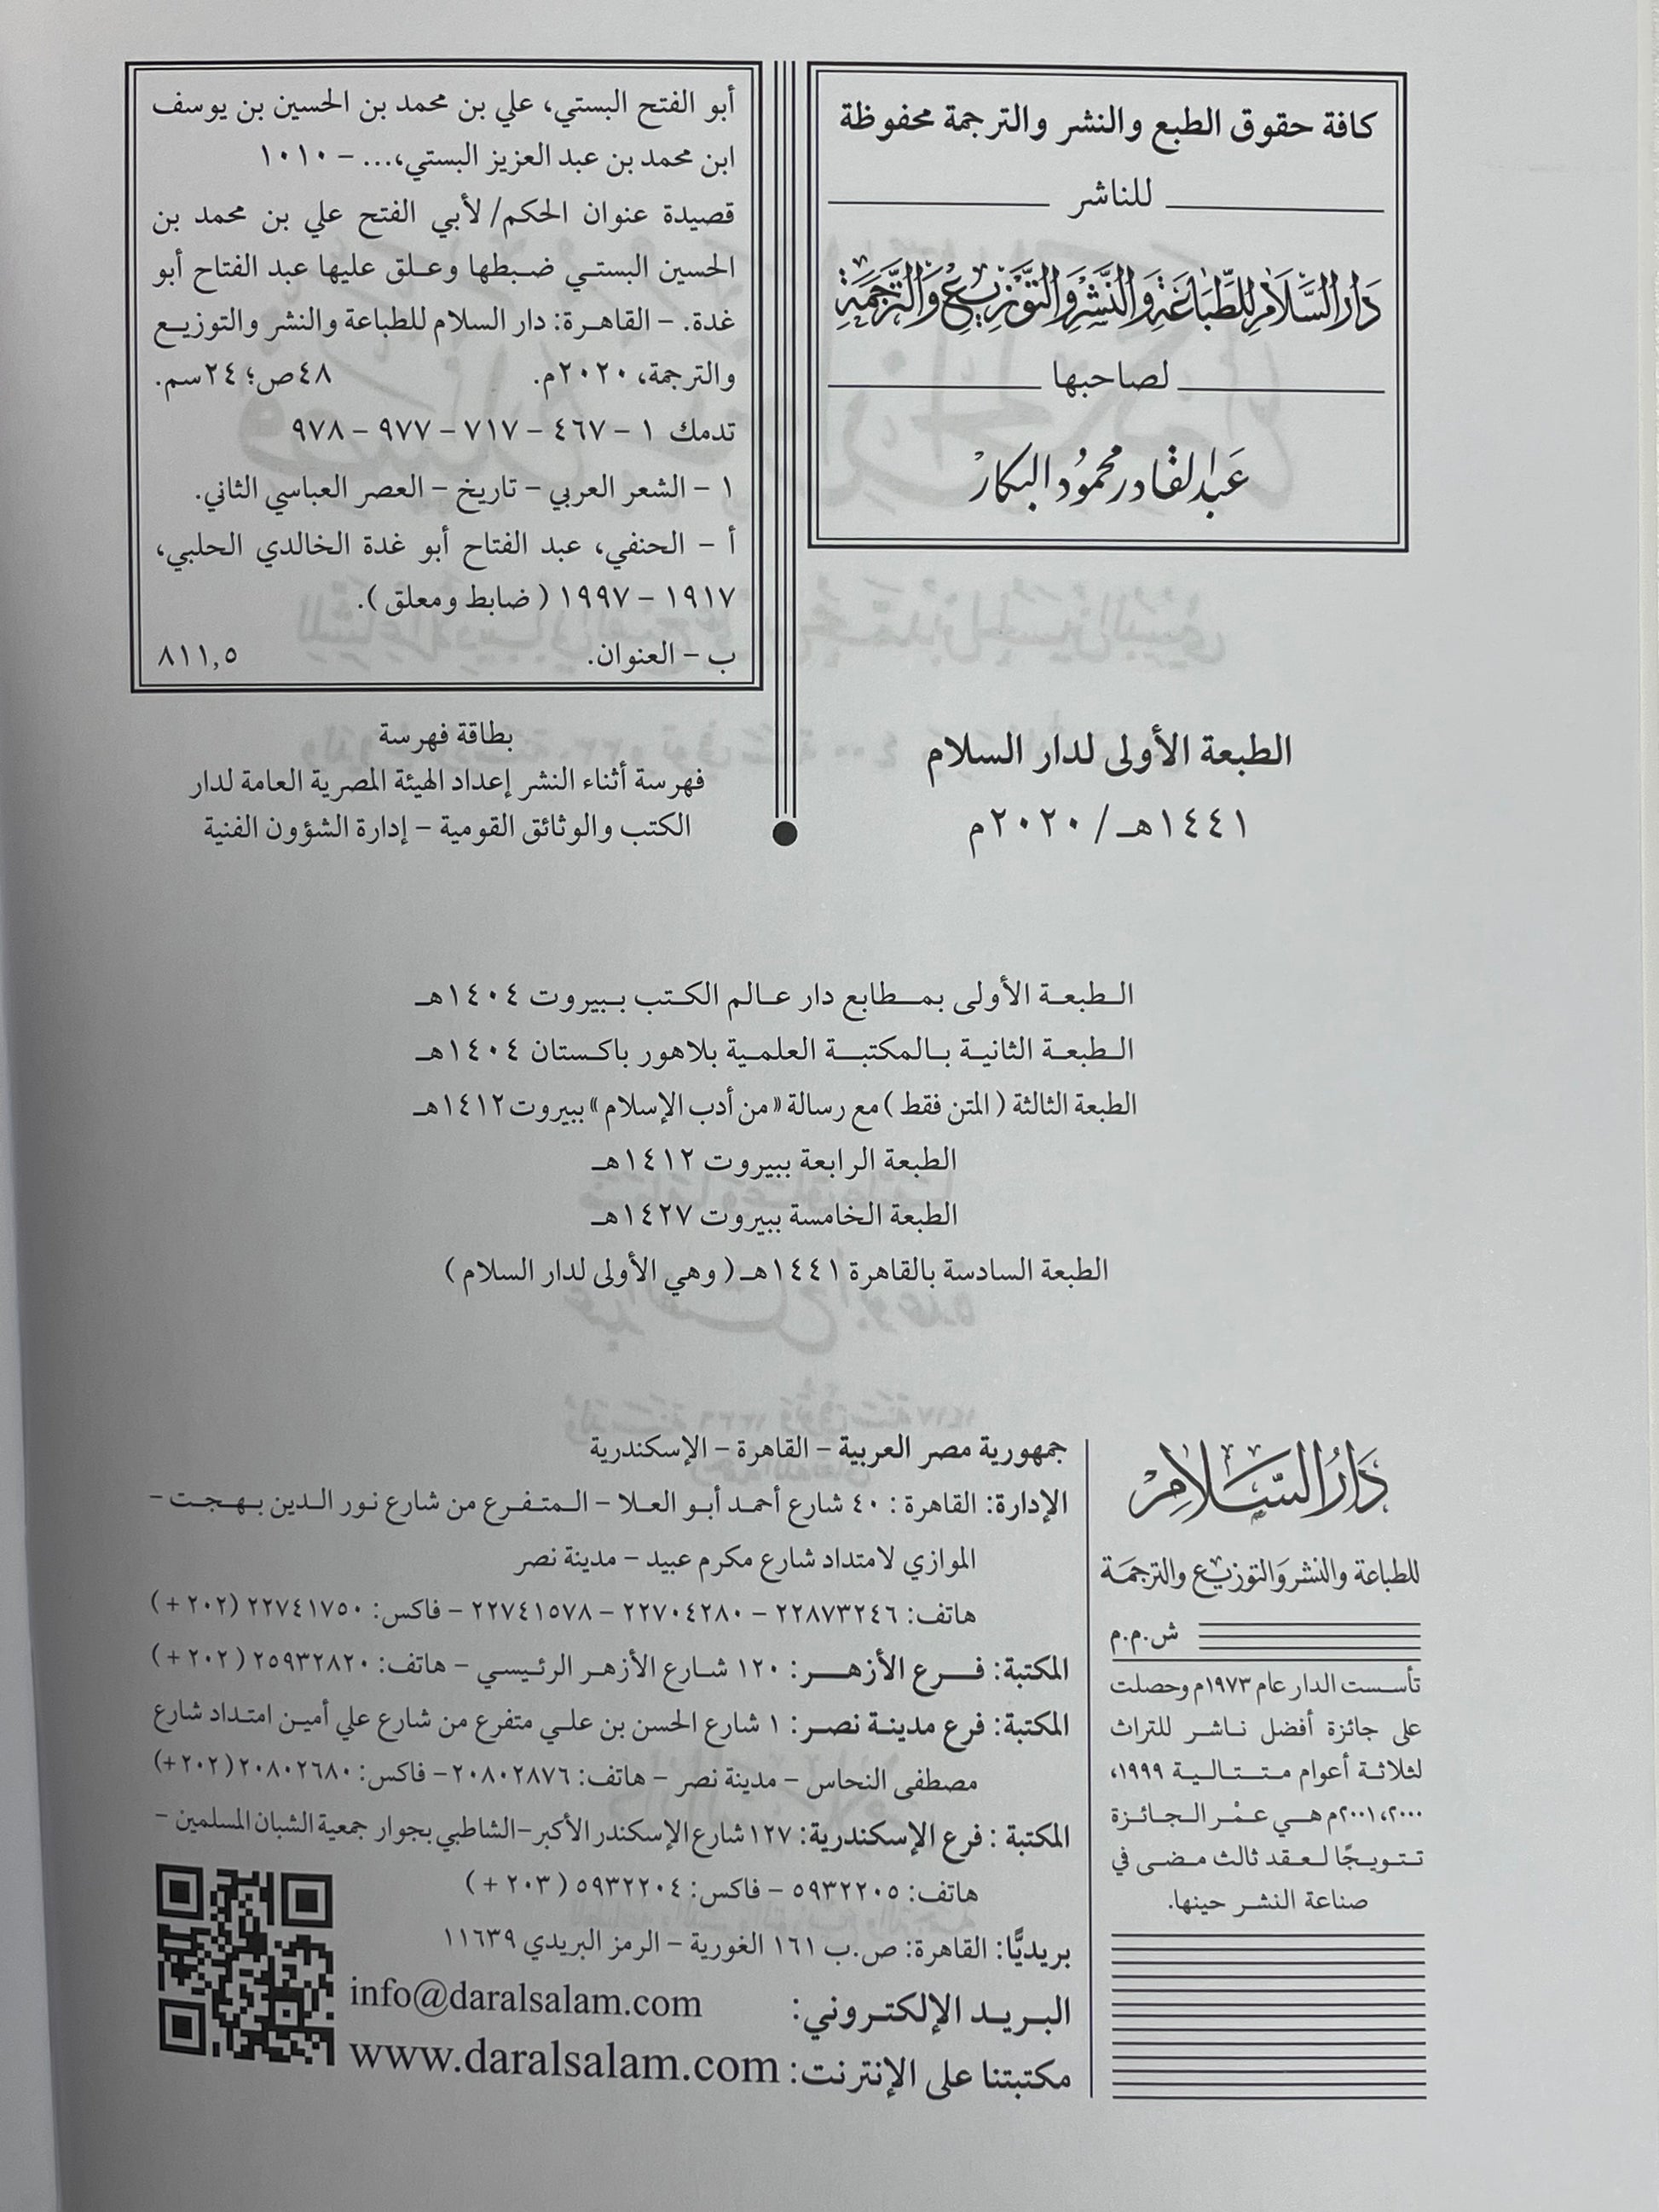 كافة حقوق الطبع والنشر والترجمة محفوظة
للناشر
دَارُ السَّلَامِ لِلطِّبَاعَةِ وَالنَّشْرِ وَالتَّوْزِيعِ وَالتَّرْجَمَةِ
لصاحبها
عَبدالقَادر محمُود البكارْ
الطبعة الأولى لدار السلام
١٤٤١هـ / ٢٠٢٠م
أبو الفتح البستي، علي بن محمد بن الحسين بن يوسف
ابن محمد بن عبد العزيز البستي،... - ١٠١٠
قصيدة عنوان الحكم/ لأبي الفتح علي بن محمد بن
الحسين البستي ضبطها وعلق عليها عبد الفتاح أبو
غدة. - القاهرة: دار السلام للطباعة والنشر والتوزيع
والترجمة، ٢٠٢٠م. ٤٨ص؛ ٢٤سم.
تدمك ١ - ٤٦٧ - ٧١٧ - ٩٧٧ - ٩٧٨
١ - الشعر العربي - تاريخ - العصر العباسي الثاني.
أ - الحنفي، عبد الفتاح أبو غدة الخالدي الحلبي،
١٩١٧ - ١٩٩٧ ( ضابط ومعلق ).
ب - العنوان. ٨١١,٥
بطاقة فهرسة
فهرسة أثناء النشر إعداد الهيئة المصرية العامة لدار
الكتب والوثائق القومية - إدارة الشؤون الفنية
الطبعة الأولى بمطابع دار عالم الكتب ببيروت ١٤٠٤هـ
الطبعة الثانية بالمكتبة العلمية بلاهور باكستان ١٤٠٤هـ
الطبعة الثالثة ( المتن فقط ) مع رسالة «من أدب الإسلام» ببيروت ١٤١٢هـ
الطبعة الرابعة ببيروت ١٤١٢هـ
الطبعة الخامسة ببيروت ١٤٢٧هـ
الطبعة السادسة بالقاهرة ١٤٤١هـ ( وهي الأولى لدار السلام )
دَارُ السَّلَامِ
للطباعة والنشر والتوزيع والترجمة
ش.م.م
تأسست الدار عام ١٩٧٣م وحصلت
على جائزة أفضل ناشر للتراث
لثلاثة أعوام متتالية ١٩٩٩،
٢٠٠٠، ٢٠٠١م هي عمْر الجائزة
تتويجًا لعقد ثالث مضى في
صناعة النشر حينها.
جمهورية مصر العربية - القاهرة - الإسكندرية
الإدارة: القاهرة : ٤٠ شارع أحمد أبو العلا - المتفرع من شارع نور الدين بهجت -
الموازي لامتداد شارع مكرم عبيد - مدينة نصر
هاتف: ٢٢٨٧٣٢٤٦ - ٢٢٧٠٤٢٨٠ - ٢٢٧٤١٥٧٨ - فاكس: ٢٢٧٤١٧٥٠ (٢٠٢ +)
المكتبة: فرع الأزهر: ١٢٠ شارع الأزهر الرئيسي - هاتف: ٢٥٩٣٢٨٢٠ (٢٠٢ +)
المكتبة: فرع مدينة نصر: ١ شارع الحسن بن علي متفرع من شارع علي أمين امتداد شارع
مصطفى النحاس - مدينة نصر - هاتف: ٢٠٨٠٢٨٧٦ - فاكس: ٢٠٨٠٢٦٨٠ (٢٠٢ +)
المكتبة : فرع الإسكندرية: ١٢٧ شارع الإسكندر الأكبر-الشاطبي بجوار جمعية الشبان المسلمين -
هاتف: ٥٩٣٢٢٠٥ - فاكس: ٥٩٣٢٢٠٤ (٢٠٣ +)
بريديًّا: القاهرة: ص.ب ١٦١ الغورية - الرمز البريدي ١١٦٣٩
البريد الإلكتروني: info@daralsalam.com
مكتبتنا على الإنترنت: www.daralsalam.com